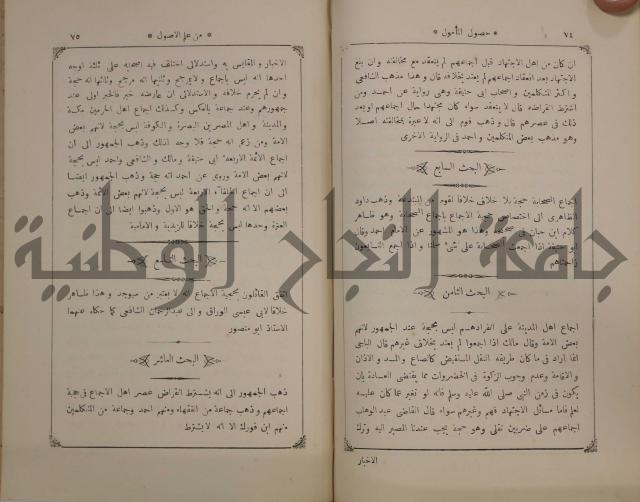 ٧٤
* حصول المأمول *
ان كان من اهل الاجتهاد قبل اجماعهم لم ينعقد مع مخالفته وان بلغ
الاجتهاد بعد انعقاد اجماعهم لم يعتد بخلافه قال وهذا مذهب الشافعى
واكثر المتكلمين واصحاب ابى حنيفة وهى رواية عن احمد ومن
اشترط انقراضه قال لا ينعقد سواء كان مجتهدا حال اجماعهم او بعد
ذلك فى عصرهم قال وذهب قوم الى انه لا عبرة بمخالفته اصلا
وهو مذهب بعض المتكلمين واحمد فى الرواية الاخرى
البحث السابع
اجماع الصحابة حجة بلا خلاف خلافا لقوم من المبتدعة وذهب داود
الظاهرى الى اختصاص حجية الاجماع باجماع الصحابة وهو ظاهر
كلام ابن حبان فى صحيحه وهذا هو المشهور عن الامام احمد وقال
ابو حنيفة اذا اجمعت الصحابة على شئ سلمنا واذا اجمع التابعون
زاحمناهم
البحث الثامن
اجماع اهل المدينة على انفرادهم ليس بحجية عند الجمهور لانهم
بعض الامة وقال مالك اذا اجمعوا لم يعتد بخلاف غيرهم قال الباجى
انما اراد فى ما كان طريقه النقل المستفيض كالصاع والمد والاذان
والاقامة وعدم وجوب الزكوة فى الخضروات مما يقتضى العادة بان
يكون فى زمن النبى صلى الله عليه وسلم فانه لو تغير عما كان عليه
لعلم فاما مسائل الاجتهاد فهم وغيرهم سواء قال القاضى عبد الوهاب
اجماعهم على ضربين نقلى وهو حجة يجب عندنا المصير اليه وترك
الاخبار
* من علم الاصول *
٧٥
الاخبار والمقاييس به واستدلالى اختلف فيه اصحابه على ثلثة اوجه
احدها انه ليس باجماع ولا بمرجح وثانيها انه مرجح وثالثها انه حجة
وان لم يحرم خلافه والاستدلالى ان عارضه خبر فالخبر اولى عند
جمهورهم وعند جماعة بالعكس وكذلك اجماع اهل الحرمين مكة
والمدينة واهل المصرين البصرة والكوفة ليس بحجية لانهم بعض
الامة ومن زعم انه حجة فلا وجه لذلك وذهب الجمهور الى ان
اجماع الائمة الاربعة ابى حنيفة ومالك والشافعى واحمد ليس بحجة
لانهم بعض الامة وروى عن احمد انه حجة وذهب الجمهور ايضا
الى ان اجماع الخلفاء الاربعة ليس بحجية لانهم بعض الامة وذهب
بعضهم الا انه حجة والحق هو الاول وذهبوا ايضا الى ان اجماع
العترة وحدها ليس بحجية خلافا للزيدية والامامية
البحث التاسع
اتفق القائلون بحجية الاجماع انه لا يعتبر من سيوجد وهذا ظاهر
خلافا لابى عيسى الوراق وابى عبد الرحمان الشافعى كما حكاه عنهما
الاستاذ ابو منصور
البحث العاشر
ذهب الجمهور الى انه يشترط انقراض عصر اهل الاجماع فى حجية
اجماعهم وذهب جماعة من الفقهاء ومنهم احمد وجماعة من المتكلمين
منهم ابن فورك الا انه لا يشترط
جامعة النجاح الوطنية